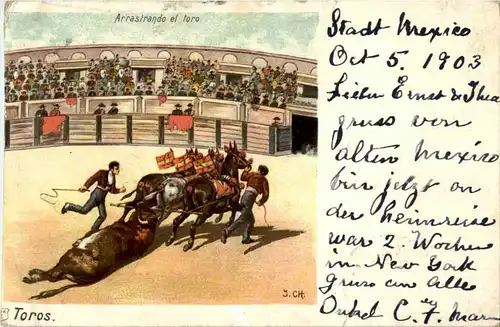 Arrastrando el toro
Stadt Mexico
Oct 5. 1903
Lieber Ernst & Thea
gruss von
alten Mexico
bin jetzt on
der heimreise
war 2. Wochen
in New York
gruss an Alle
Onkel C. F.
J. CH.
Toros.